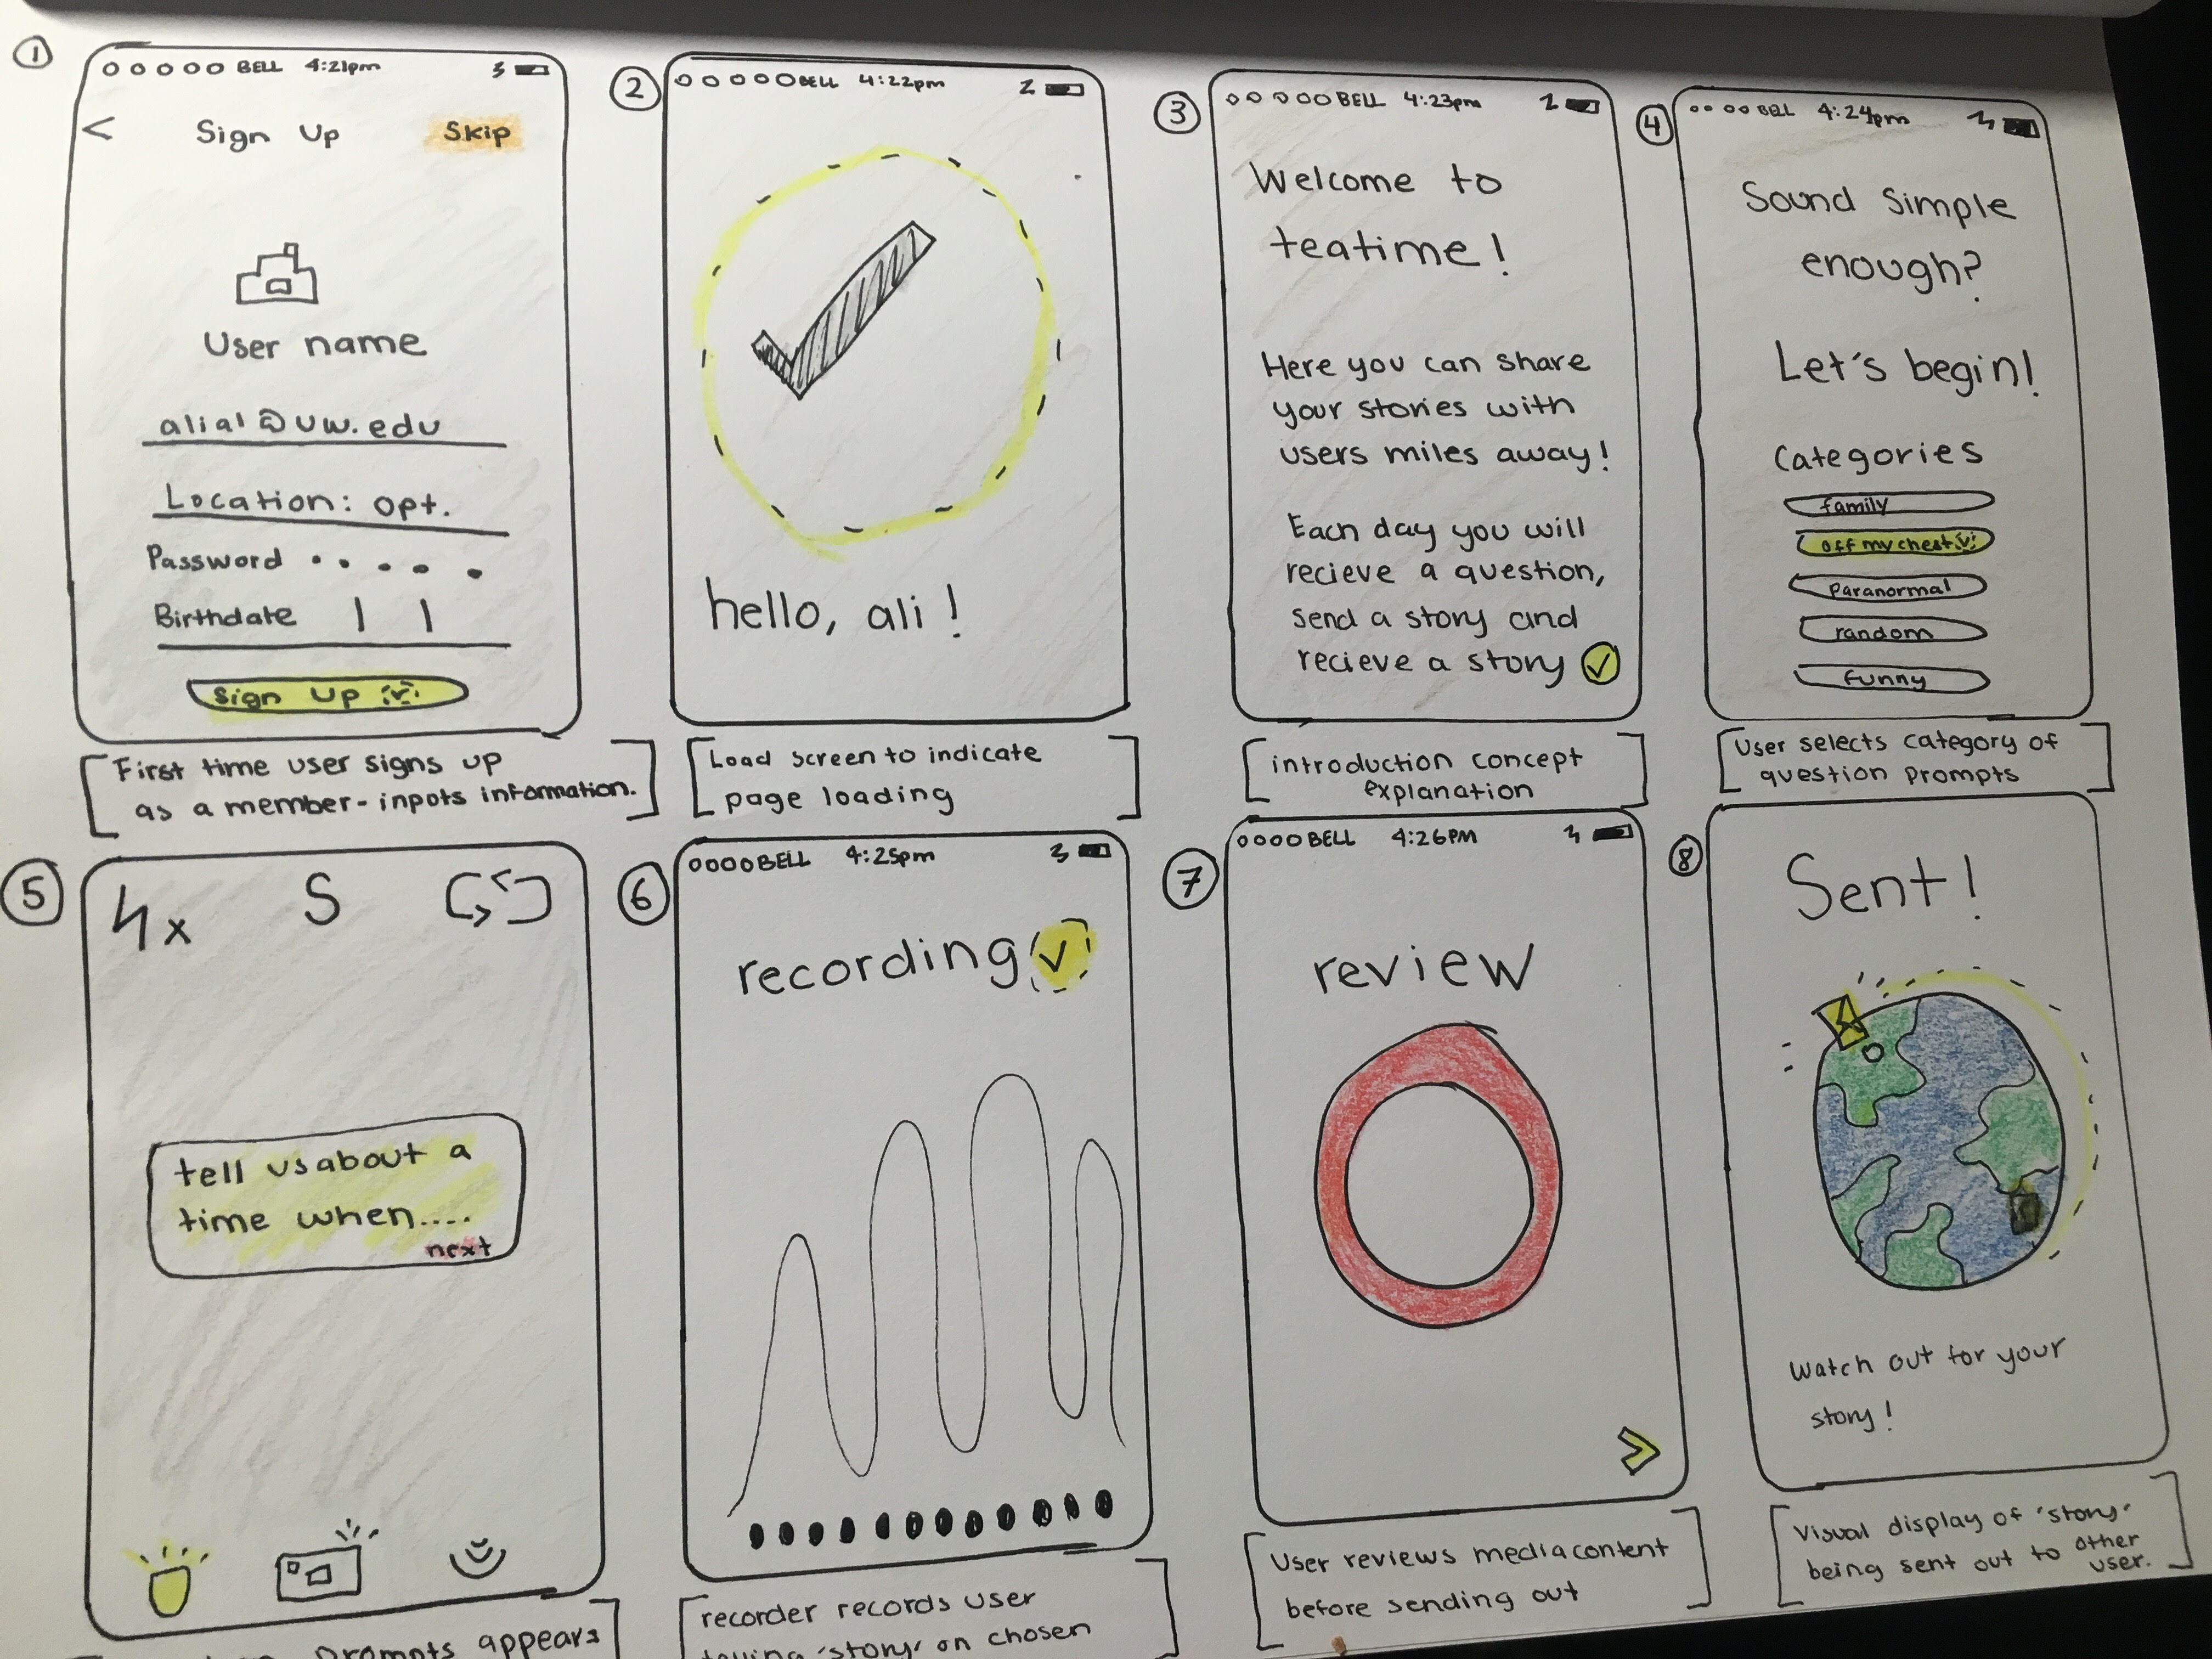 1
BELL 4:21pm
< Sign Up Skip
User name
alial@uw.edu
Location: opt.
Password
Birthdate
Sign Up
First time user signs up
as a member- inputs information.
2
BELL 4:22pm
hello, ali!
Load screen to indicate
page loading
3
BELL 4:23pm
Welcome to
teatime!
Here you can share
your stories with
users miles away!
Each day you will
recieve a question,
send a story and
recieve a story
introduction concept
explanation
4
BELL 4:24pm
Sound Simple
enough?
Let's begin!
Categories
family
off my chest
paranormal
random
funny
User selects category of
question prompts
5
x S
tell us about a
time when....
next
prompts appears
6
BELL 4:25pm
recording
recorder records user
'story' on chosen
7
BELL 4:26PM
review
User reviews media content
before sending out
8
Sent!
Watch out for your
story!
Visual display of 'story'
being sent out to other
user.